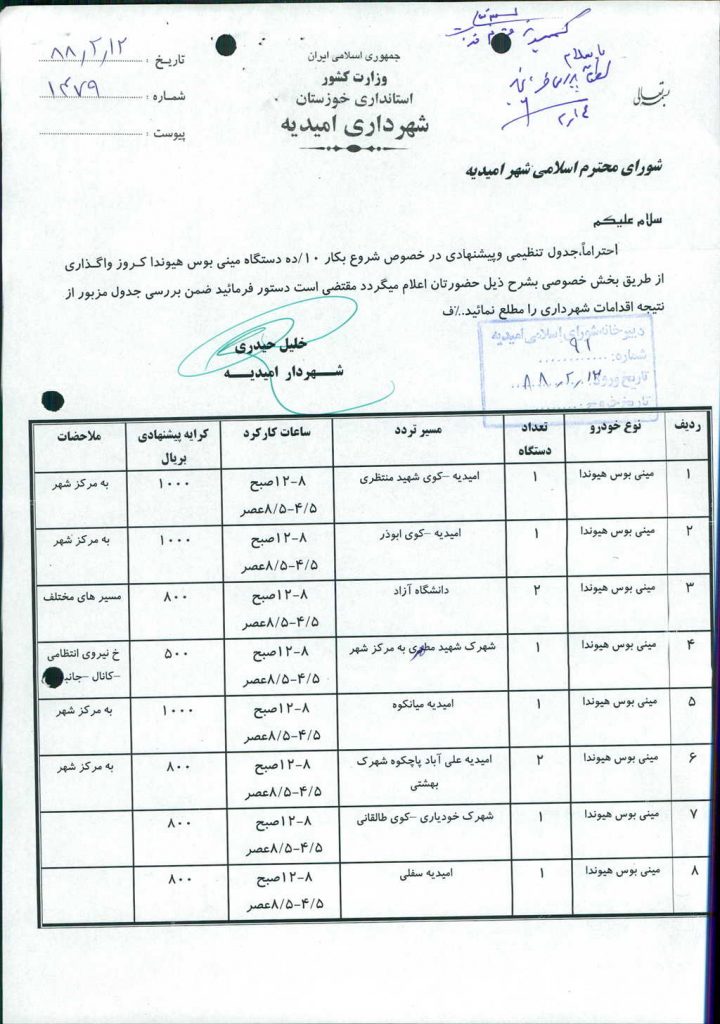 بسمه تعالی
کمیسیون
با سلام
لطفاً بررسی
۲/۱۴
بسمه تعالی
جمهوری اسلامی ایران
وزارت کشور
استانداری خوزستان
شهرداری امیدیه
تاریخ : ۸۸/۲/۱۲
شماره : ۱۴۷۹
پیوست :
شورای محترم اسلامی شهر امیدیه
سلام علیکم
احتراماً،جدول تنظیمی وپیشنهادی در خصوص شروع بکار ۱۰/ده دستگاه مینی بوس هیوندا کروز واگذاری
از طریق بخش خصوصی بشرح ذیل حضورتان اعلام میگردد مقتضی است دستور فرمائید ضمن بررسی جدول مزبور از
نتیجه اقدامات شهرداری را مطلع نمائید.٪ف
خلیل حیدری
شهردار امیدیه
دبیرخانه شورای اسلامی امیدیه
شماره: ۹۱
تاریخ ورود: ۸۸/۲/۱۲
تاریخ خروج:
ردیف نوع خودرو تعداد دستگاه مسیر تردد ساعات کارکرد کرایه پیشنهادی بریال ملاحضات
۱ مینی بوس هیوندا ۱ امیدیه –کوی شهید منتظری ۸-۱۲صبح ۴/۵-۸/۵عصر ۱۰۰۰ به مرکز شهر
۲ مینی بوس هیوندا ۱ امیدیه –کوی ابوذر ۸-۱۲صبح ۴/۵-۸/۵عصر ۱۰۰۰ به مرکز شهر
۳ مینی بوس هیوندا ۲ دانشگاه آزاد ۸-۱۲صبح ۴/۵-۸/۵عصر ۸۰۰ مسیر های مختلف
۴ مینی بوس هیوندا ۱ شهرک شهید مطهری به مرکز شهر ۸-۱۲صبح ۴/۵-۸/۵عصر ۵۰۰ خ نیروی انتظامی –کانال
۵ مینی بوس هیوندا ۱ امیدیه میانکوه ۸-۱۲صبح ۴/۵-۸/۵عصر ۱۰۰۰ به مرکز شهر
۶ مینی بوس هیوندا ۲ امیدیه علی آباد پاچکوه شهرک بهشتی ۸-۱۲صبح ۴/۵-۸/۵عصر ۸۰۰ به مرکز شهر
۷ مینی بوس هیوندا ۱ شهرک خودیاری –کوی طالقانی ۸-۱۲صبح ۴/۵-۸/۵عصر ۸۰۰
۸ مینی بوس هیوندا ۱ امیدیه سفلی ۸-۱۲صبح ۴/۵-۸/۵عصر ۸۰۰